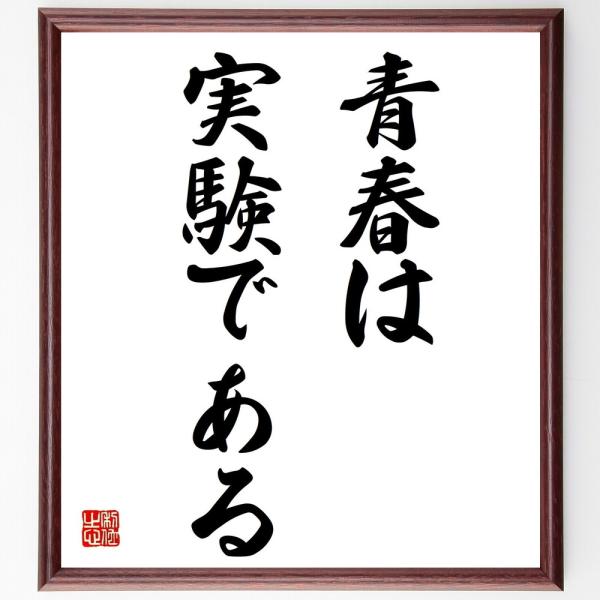 青春は
実験である